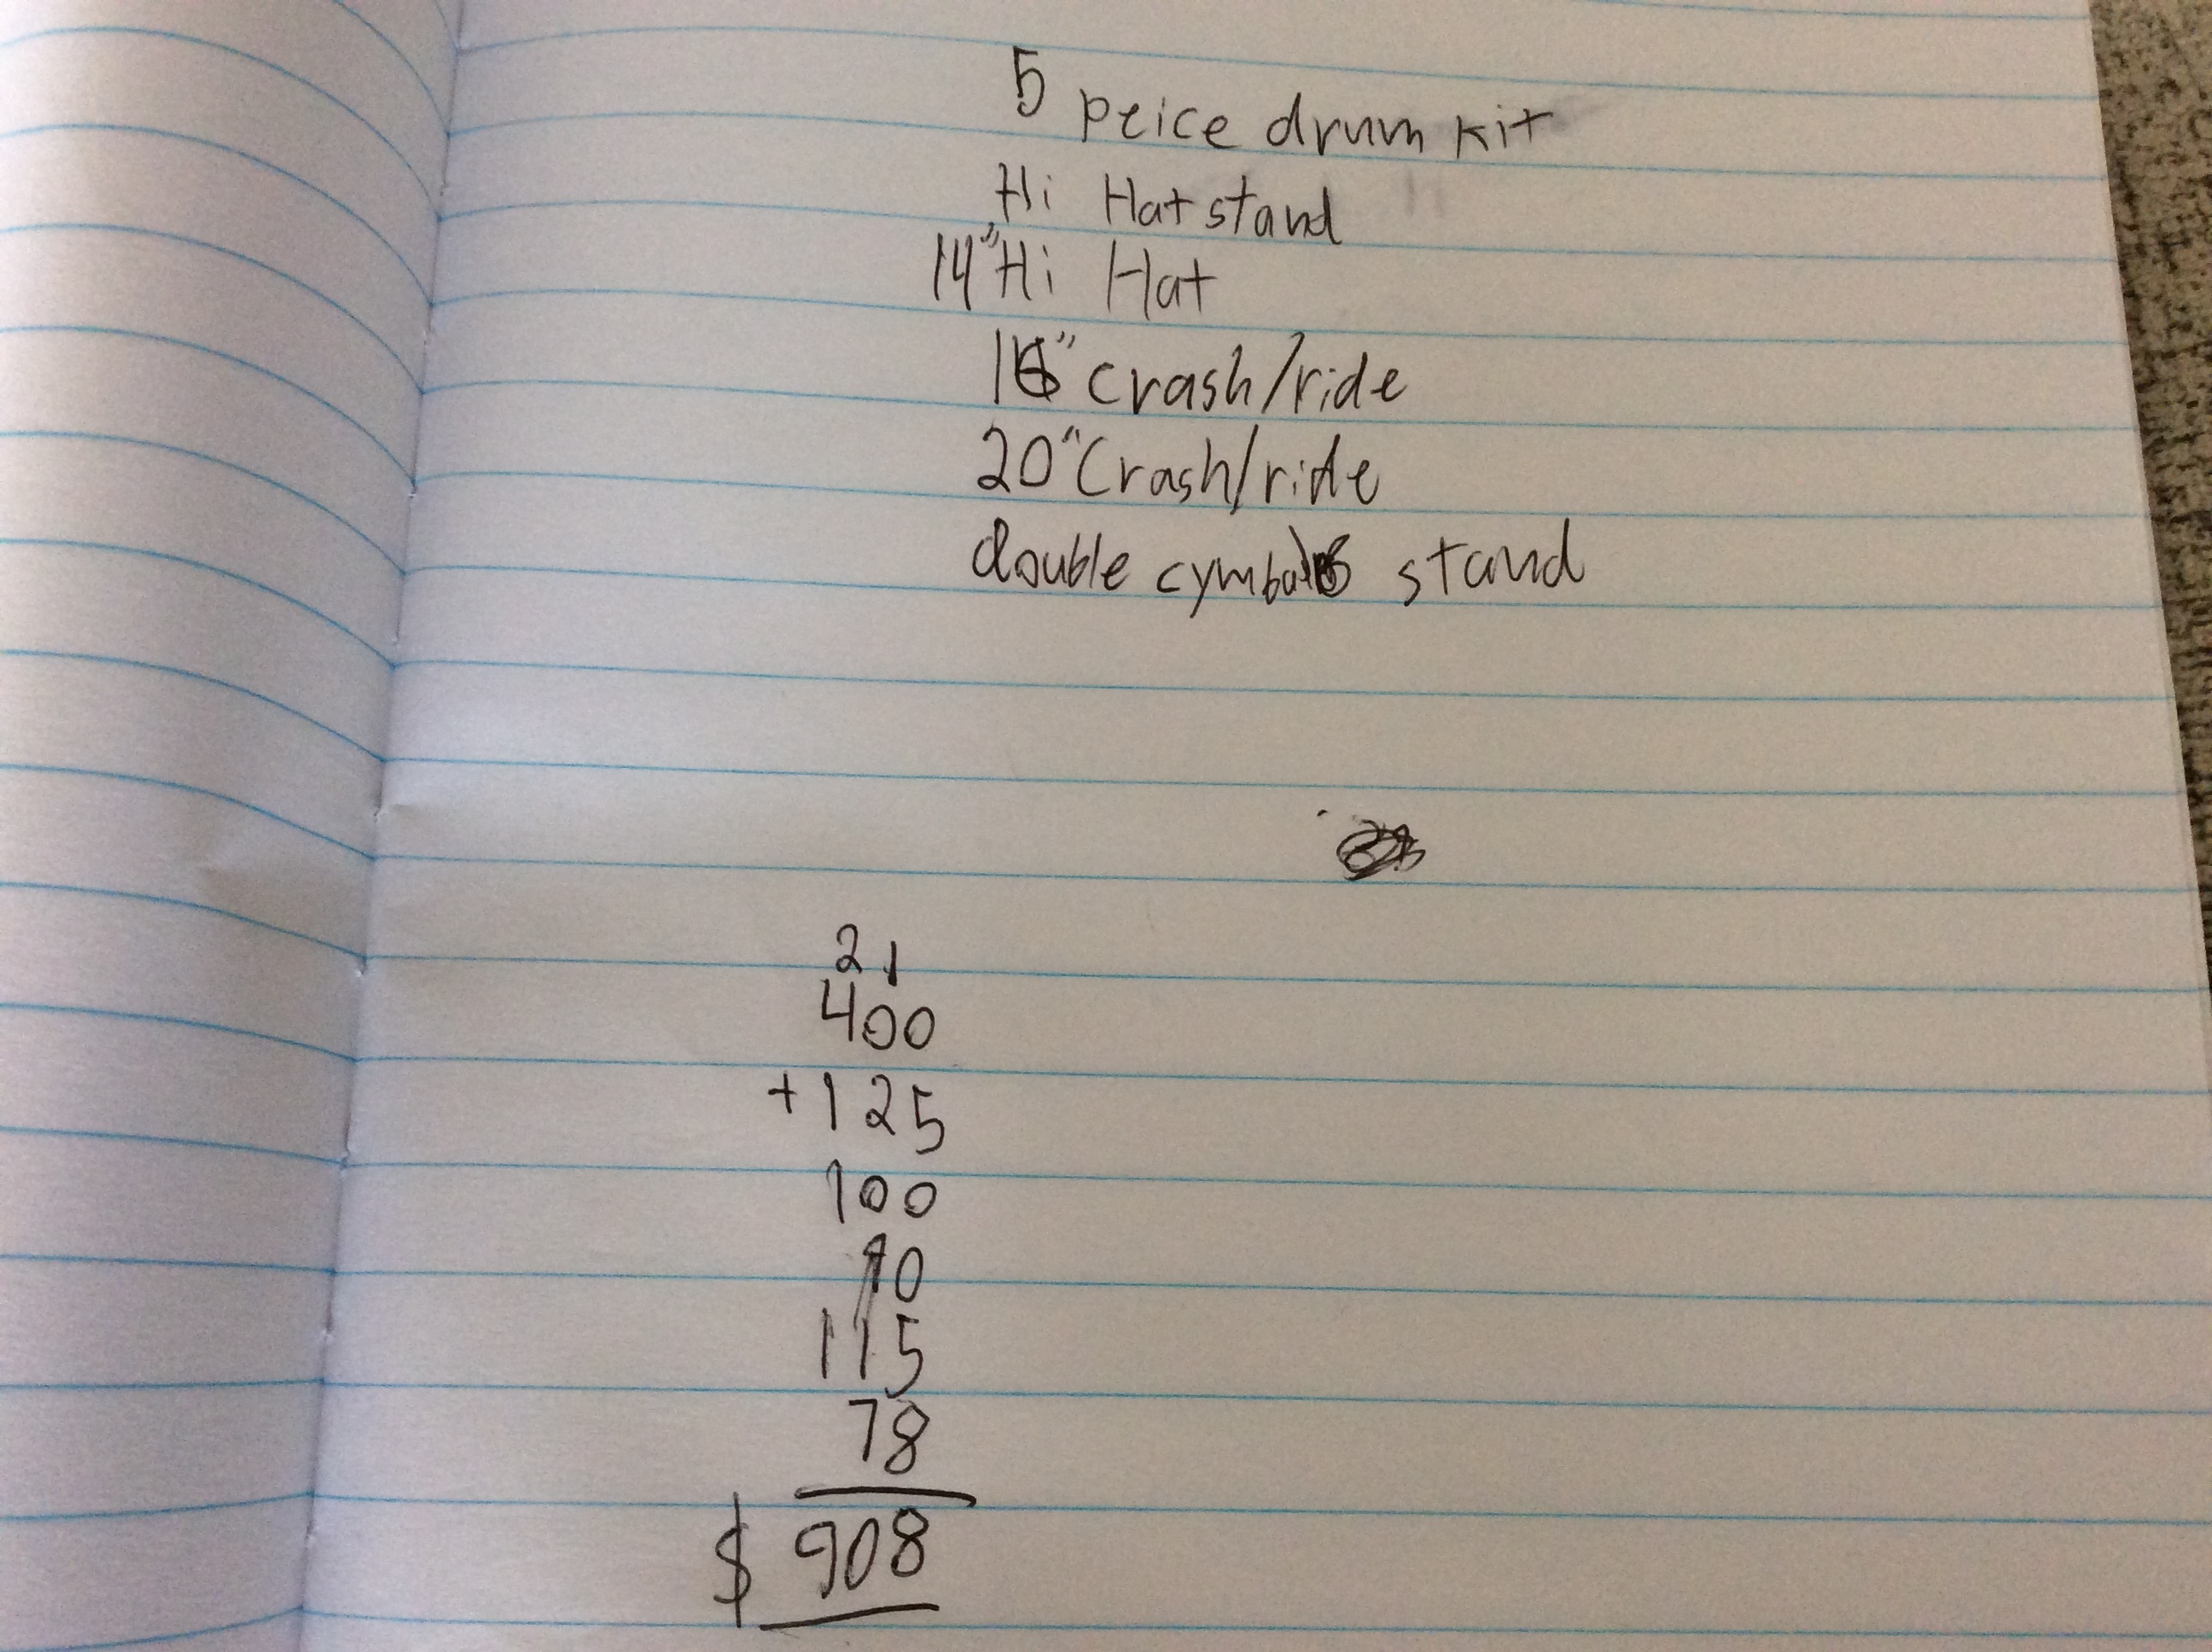 5 peice drum kit
Hi Hat stand
14" Hi Hat
16" crash/ride
20" Crash/ride
double cymbal stand
21
400
+125
100
90
115
78
$908